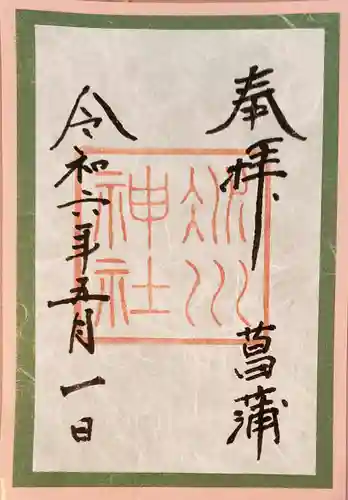 奉拝、菖蒲
冰川
神社
令和六年五月一日